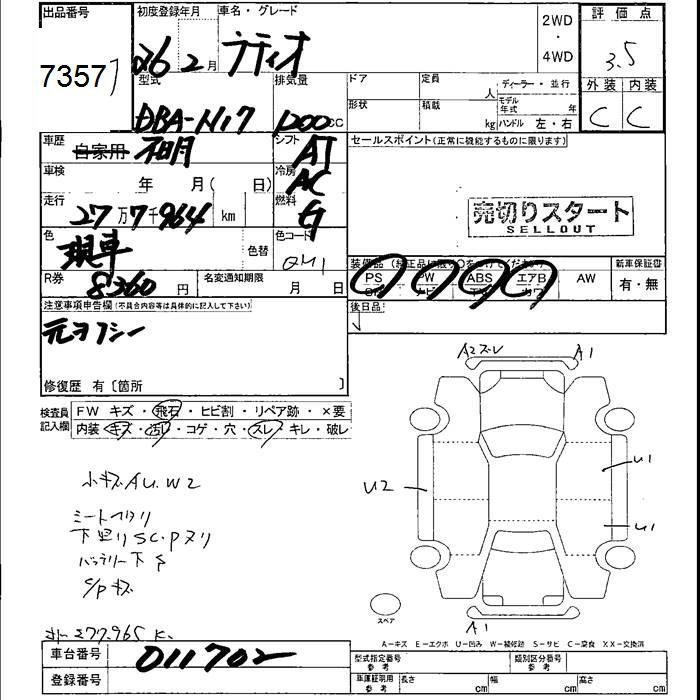 出品番号 初度登録年月 車名・グレード 2WD・4WD 評価点
7357 26 2月 ラティオ 3.5
型式 排気量 ドア 定員 人 ディーラー・並行 外装 内装
DBA-N17 1200cc 形状 積載 kg モデル年式 年 ハンドル 左・右 C C
車歴 自家用 シフト AT セールスポイント(正常に機能するものに限ります)
車検 年 月( 日) 冷房 AC
走行 27万7千964 km 燃料 G 売切りスタート
SELLOUT
色 現車 色替 色コード QM1 装備品(純正品に限り○をつけてください) 新車保証書
R券 8360円 名変通知期限 月 日 PS PW ABS エアB AW 有・無
SR ナビ TV カワ
注意事項申告欄(不具合内容等は具体的に記入して下さい) 後日品
元タクシー
修復歴 有〔箇所 〕
A2ズレ A1
検査員記入欄 FW キズ・飛石・ヒビ割・リペア跡・×要
内装 キズ・汚れ・コゲ・穴・スレ・キレ・破レ
小キズAU.W2
U2 U1
U1
シートヘタリ
下廻りSC.Pヌリ
バッテリー下S
S/Pキズ
スペア
A1
277.965 K.
A−キズ E−エクボ U−凹み W−補修跡 S−サビ C−腐食 XX−交換済
車台番号 011702 型式指定番号 参考 類別区分番号 参考
登録番号 車庫証明用 参考 長さ cm 幅 cm 高さ cm